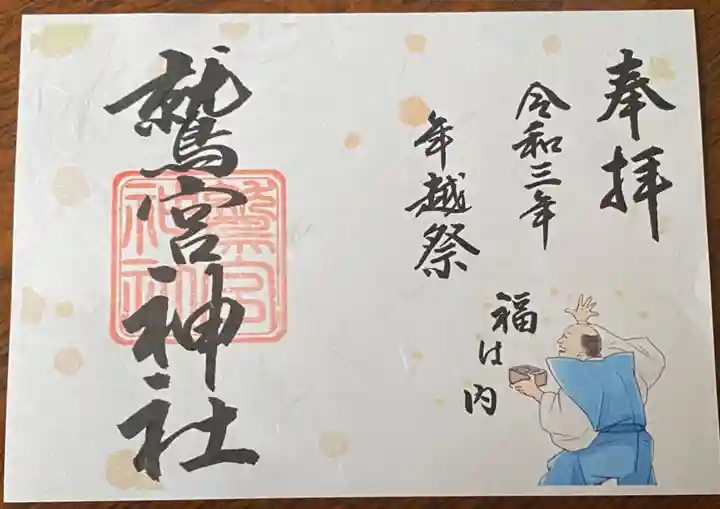 奉拝
令和三年
年越祭
福は内
鷲宮神社
鷲宮
神社